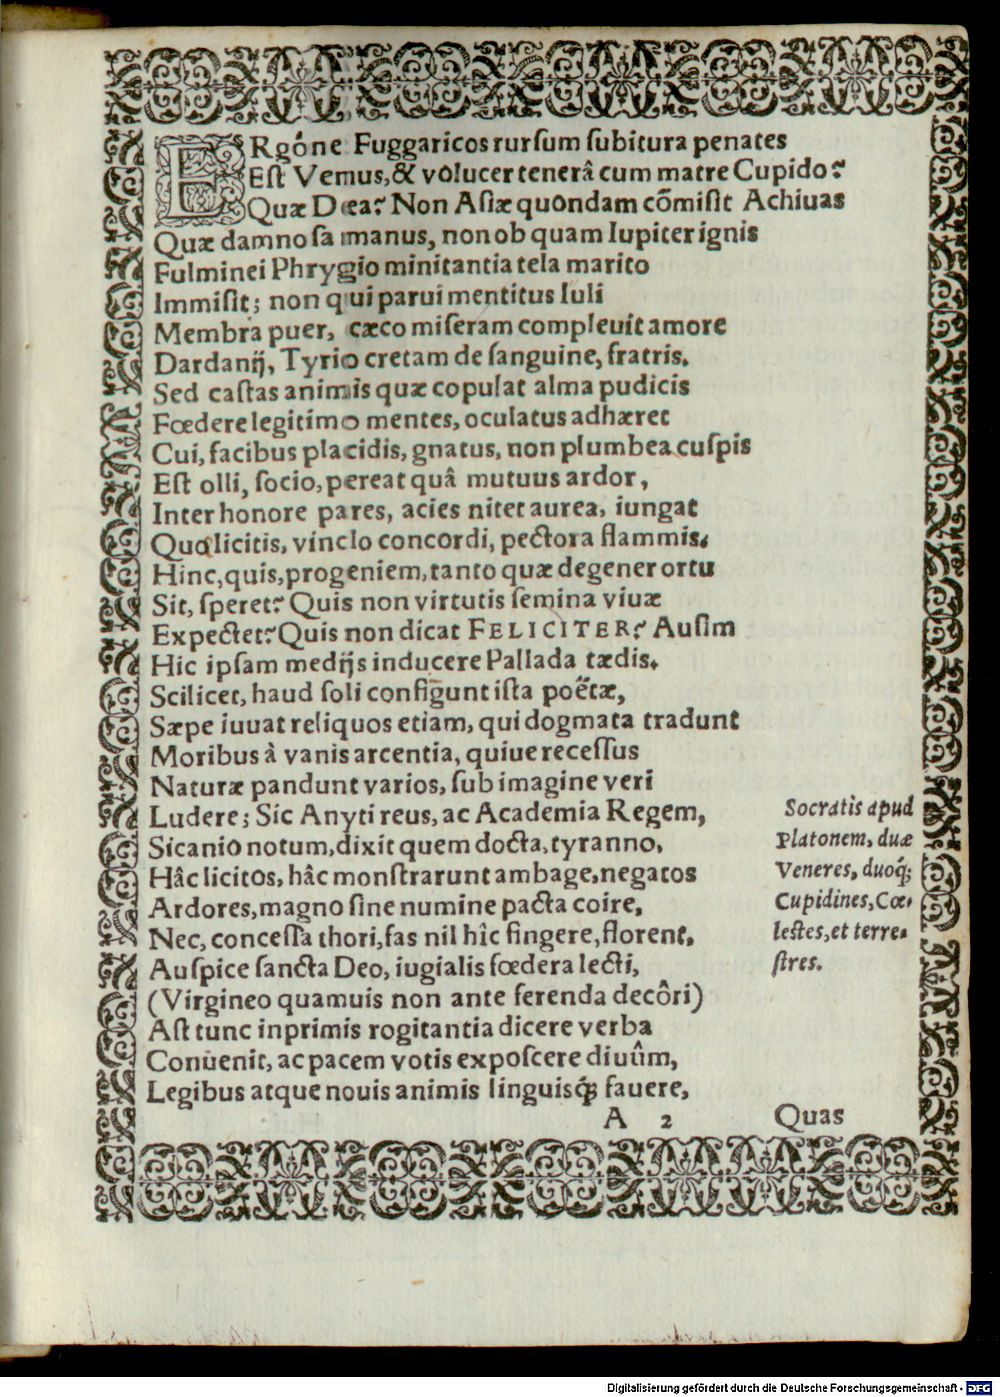 ERgóne Fuggaricos rursum subitura penates
Est Vemus, & volucer tenerâ cum matre Cupido?
Quæ Dea? Non Asiæ quondam cõmisit Achiuas
Quæ damnosa manus, non ob quam Iupiter ignis
Fulminei Phrygio minitantia tela marito
Immisit; non qui parui mentitus Iuli
Membra puer, cæco miseram compleuit amore
Dardanij, Tyrio cretam de sanguine, fratris.
Sed castas animis quæ copulat alma pudicis
Fœdere legitimo mentes, oculatus adhæret
Cui, facibus placidis, gnatus, non plumbea cuspis
Est olli, socio, pereat quâ mutuus ardor,
Inter honore pares, acies nitet aurea, iungat
Quo licitis, vinclo concordi, pectora flammis.
Hinc, quis, progeniem, tanto quæ degener ortu
Sit, speret? Quis non virtutis semina viuæ
Expectet? Quis non dicat FELICITER? Ausim
Hic ipsam medijs inducere Pallada tædis.
Scilicet, haud soli configunt ista poëtæ,
Sæpe iuuat reliquos etiam, qui dogmata tradunt
Moribus à vanis arcentia, quiue recessus
Naturæ pandunt varios, sub imagine veri
Ludere; Sic Anyti reus, ac Academia Regem,
Sicanio notum, dixit quem docta, tyranno,
Hâc licitos, hâc monstrarunt ambage, negatos
Ardores, magno sine numine pacta coire,
Nec, concessa thori, fas nil hîc fingere, florent,
Auspice sancta Deo, iugialis fœdera lecti,
(Virgineo quamuis non ante ferenda decôri)
Ast tunc inprimis rogitantia dicere verba
Conuenit, ac pacem votis exposcere diuûm,
Legibus atque nouis animis linguisq́; fauere,
Socratis apud
Platonem, duæ
Veneres, duoq́;
Cupidines, Cœ-
lestes, et terre-
stres.
A 2 Quas
Digitalisierung gefördert durch die Deutsche Forschungsgemeinschaft - DFG